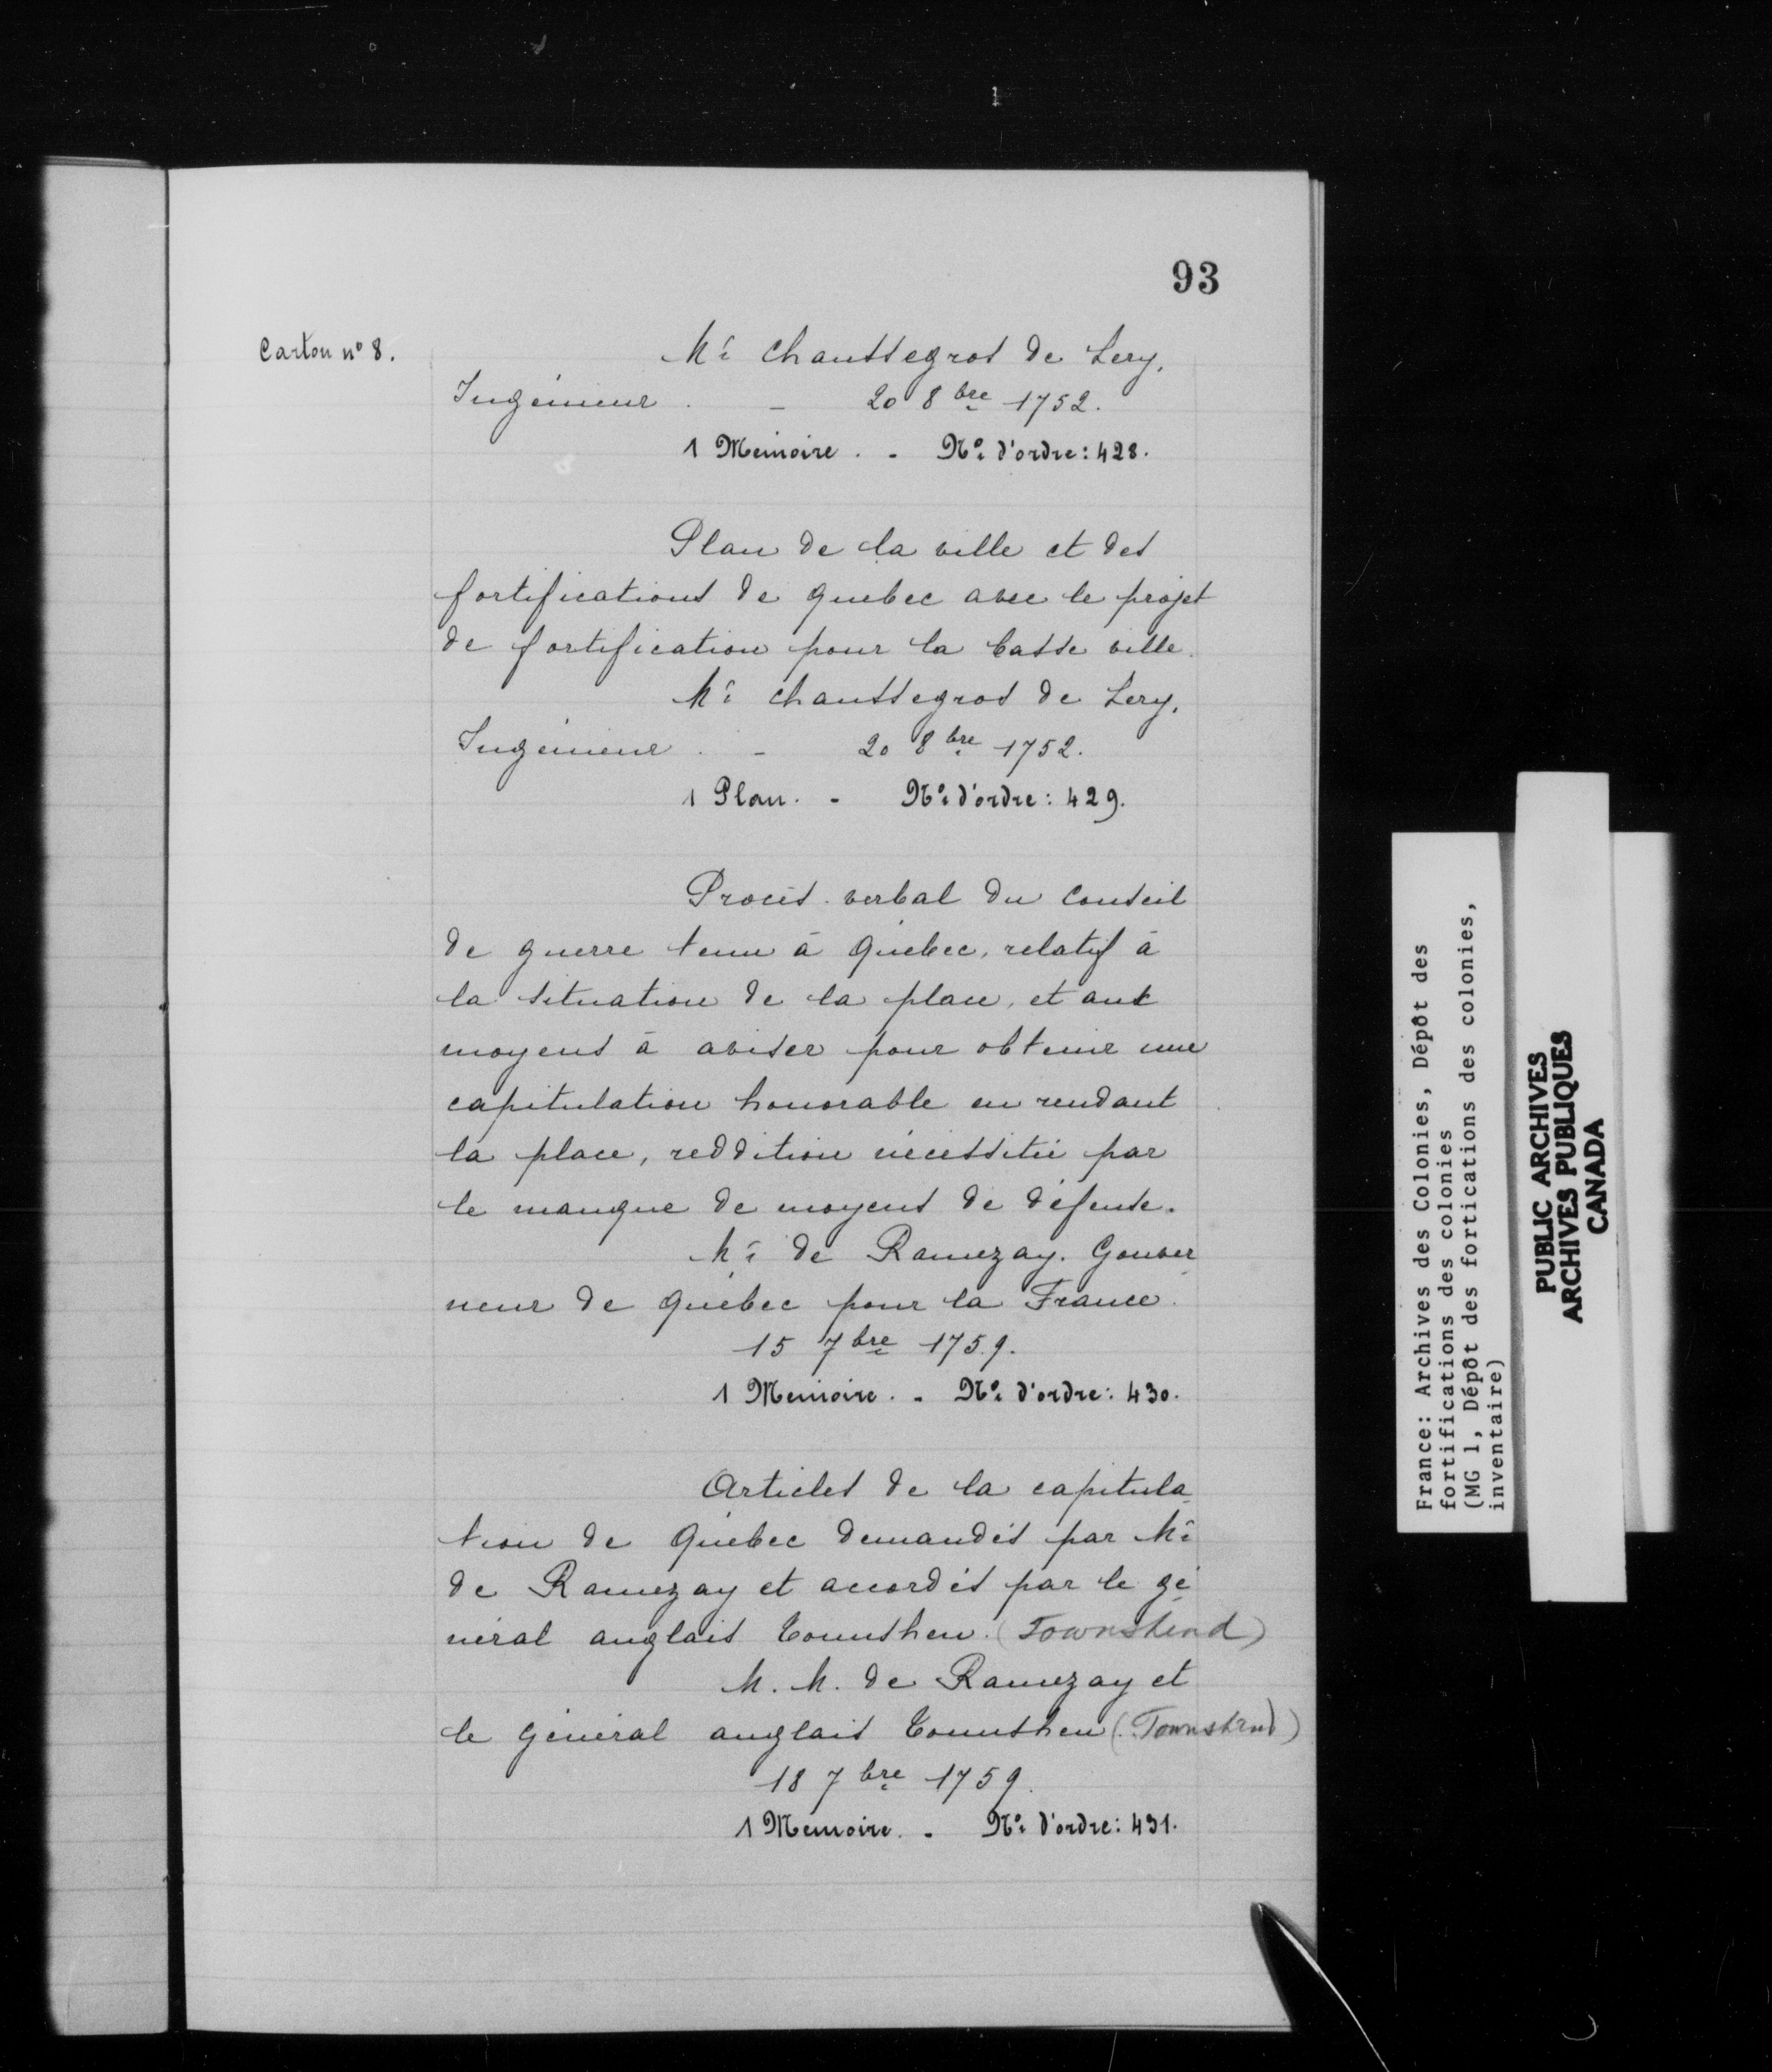 93
Carton n° 8.
Mr. Chaussegros de Lery,
Ingénieur . - 20 8bre 1752.
1 Mémoire . - No. d'ordre : 428.
Plan de la ville et des
fortifications de Quebec avec le projet
de fortification pour la basse ville.
Mr. Chaussegros de Lery,
Ingénieur . - 20 8bre 1752.
1 Plan . - No. d'ordre : 429.
Procès-verbal du Conseil
de guerre tenu à Québec, relatif à
la situation de la place, et aux
moyens à aviser pour obtenir une
capitulation honorable en rendant
la place, reddition nécessitée par
le manque de moyens de défense.
Mr. de Ramezay. Gouver
neur de Québec pour la France.
15 7bre 1759.
1 Mémoire . - No. d'ordre : 430.
Articles de la capitula
tion de Québec demandés par Mr.
de Ramezay et accordés par le gé
néral anglais Tounshen. (Townshend)
M. M. de Ramezay et
le Général anglais Tounshen (Townshend)
18 7bre 1759.
1 Mémoire . - No. d'ordre : 431.
France: Archives des Colonies, Dépôt des
fortifications des colonies
(MG 1, Dépôt des fortications des colonies,
inventaire)
PUBLIC ARCHIVES
ARCHIVES PUBLIQUES
CANADA